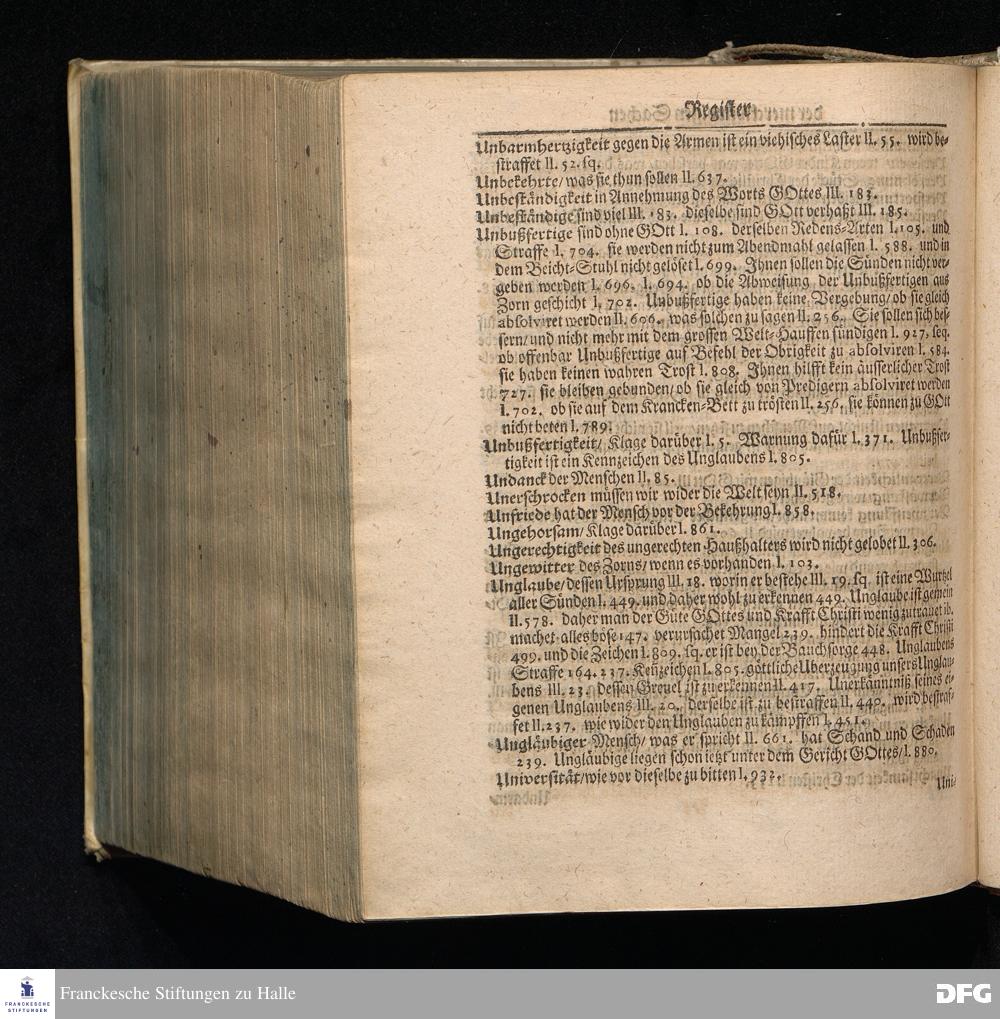 Register
Unbarmhertzigkeit gegen die Armen ist ein viehisches Laster II. 55. wird be-
straffet II. 52. sq.
Unbekehrte/ was sie thun sollen II. 637.
Unbeständigkeit in Annehmung des Worts GOttes III. 183.
Unbeständige sind viel III. 183. dieselbe sind GOtt verhaßt III. 185.
Unbußfertige sind ohne GOtt I. 108. derselben Redens-Arten I. 105. und
Straffe I. 704. sie werden nicht zum Abendmahl gelassen I. 588. und in
dem Beicht-Stuhl nicht gelöset I. 699. Ihnen sollen die Sünden nicht ver-
geben werden I. 696. I. 694. ob die Abweisung der Unbußfertigen aus
Zorn geschicht I. 702. Unbußfertige haben keine Vergebung/ ob sie gleich
absolviret werden II. 606. was solchen zu sagen II. 256. Sie sollen sich bes-
sern/ und nicht mehr mit dem grossen Welt-Hauffen sündigen I. 927. seq.
ob offenbar Unbußfertige auf Befehl der Obrigkeit zu absolviren I. 584.
sie haben keinen wahren Trost I. 808. Ihnen hilfft kein äusserlicher Trost
727. sie bleiben gebunden/ ob sie gleich von Predigern absolviret werden
I. 702. ob sie auf dem Krancken-Bett zu trösten II. 256. sie können zu GOtt
nicht beten I. 789.
Unbußfertigkeit/ Klage darüber I. 5. Warnung dafür I. 371. Unbußfer-
tigkeit ist ein Kennzeichen des Unglaubens I. 805.
Undanck der Menschen II. 85.
Unerschrocken müssen wir wider die Welt seyn II. 518.
Unfriede hat der Mensch vor der Bekehrung I. 858.
Ungehorsam/ Klage darüber I. 861.
Ungerechtigkeit des ungerechten Haußhalters wird nicht gelobet II. 306.
Ungewitter des Zorns/ wenn es vorhanden I. 103.
Unglaube/ dessen Ursprung III. 18. worin er bestehe III. 19. sq. ist eine Wurtzel
aller Sünden I. 449. und daher wohl zu erkennen 449. Unglaube ist gemein
II. 578. daher man der Güte GOttes und Krafft Christi wenig zutrauet ib.
machet alles böse 147. verursachet Mangel 239. hindert die Krafft Christi
499. und die Zeichen I. 809. sq. er ist bey der Bauchsorge 448. Unglaubens
Straffe 164. 237. Keñzeichen I. 805. göttliche Uberzeugung unsers Unglau-
bens III. 23. dessen Greuel ist zu erkennen II. 417. Unerkänntniß seines ei-
genen Unglaubens III. 20. derselbe ist zu bestraffen II. 440. wird bestraf-
fet II. 237. wie wider den Unglauben zu kämpffen I. 451.
Ungläubiger Mensch/ was er spricht II. 661. hat Schand und Schaden
239. Ungläubige liegen schon ietzt unter dem Gericht GOttes/ I. 880.
Universität/ wie vor dieselbe zu bitten I. 932.
Uni-
FRANCKESCHE
STIFTUNGEN
Franckesche Stiftungen zu Halle
DFG